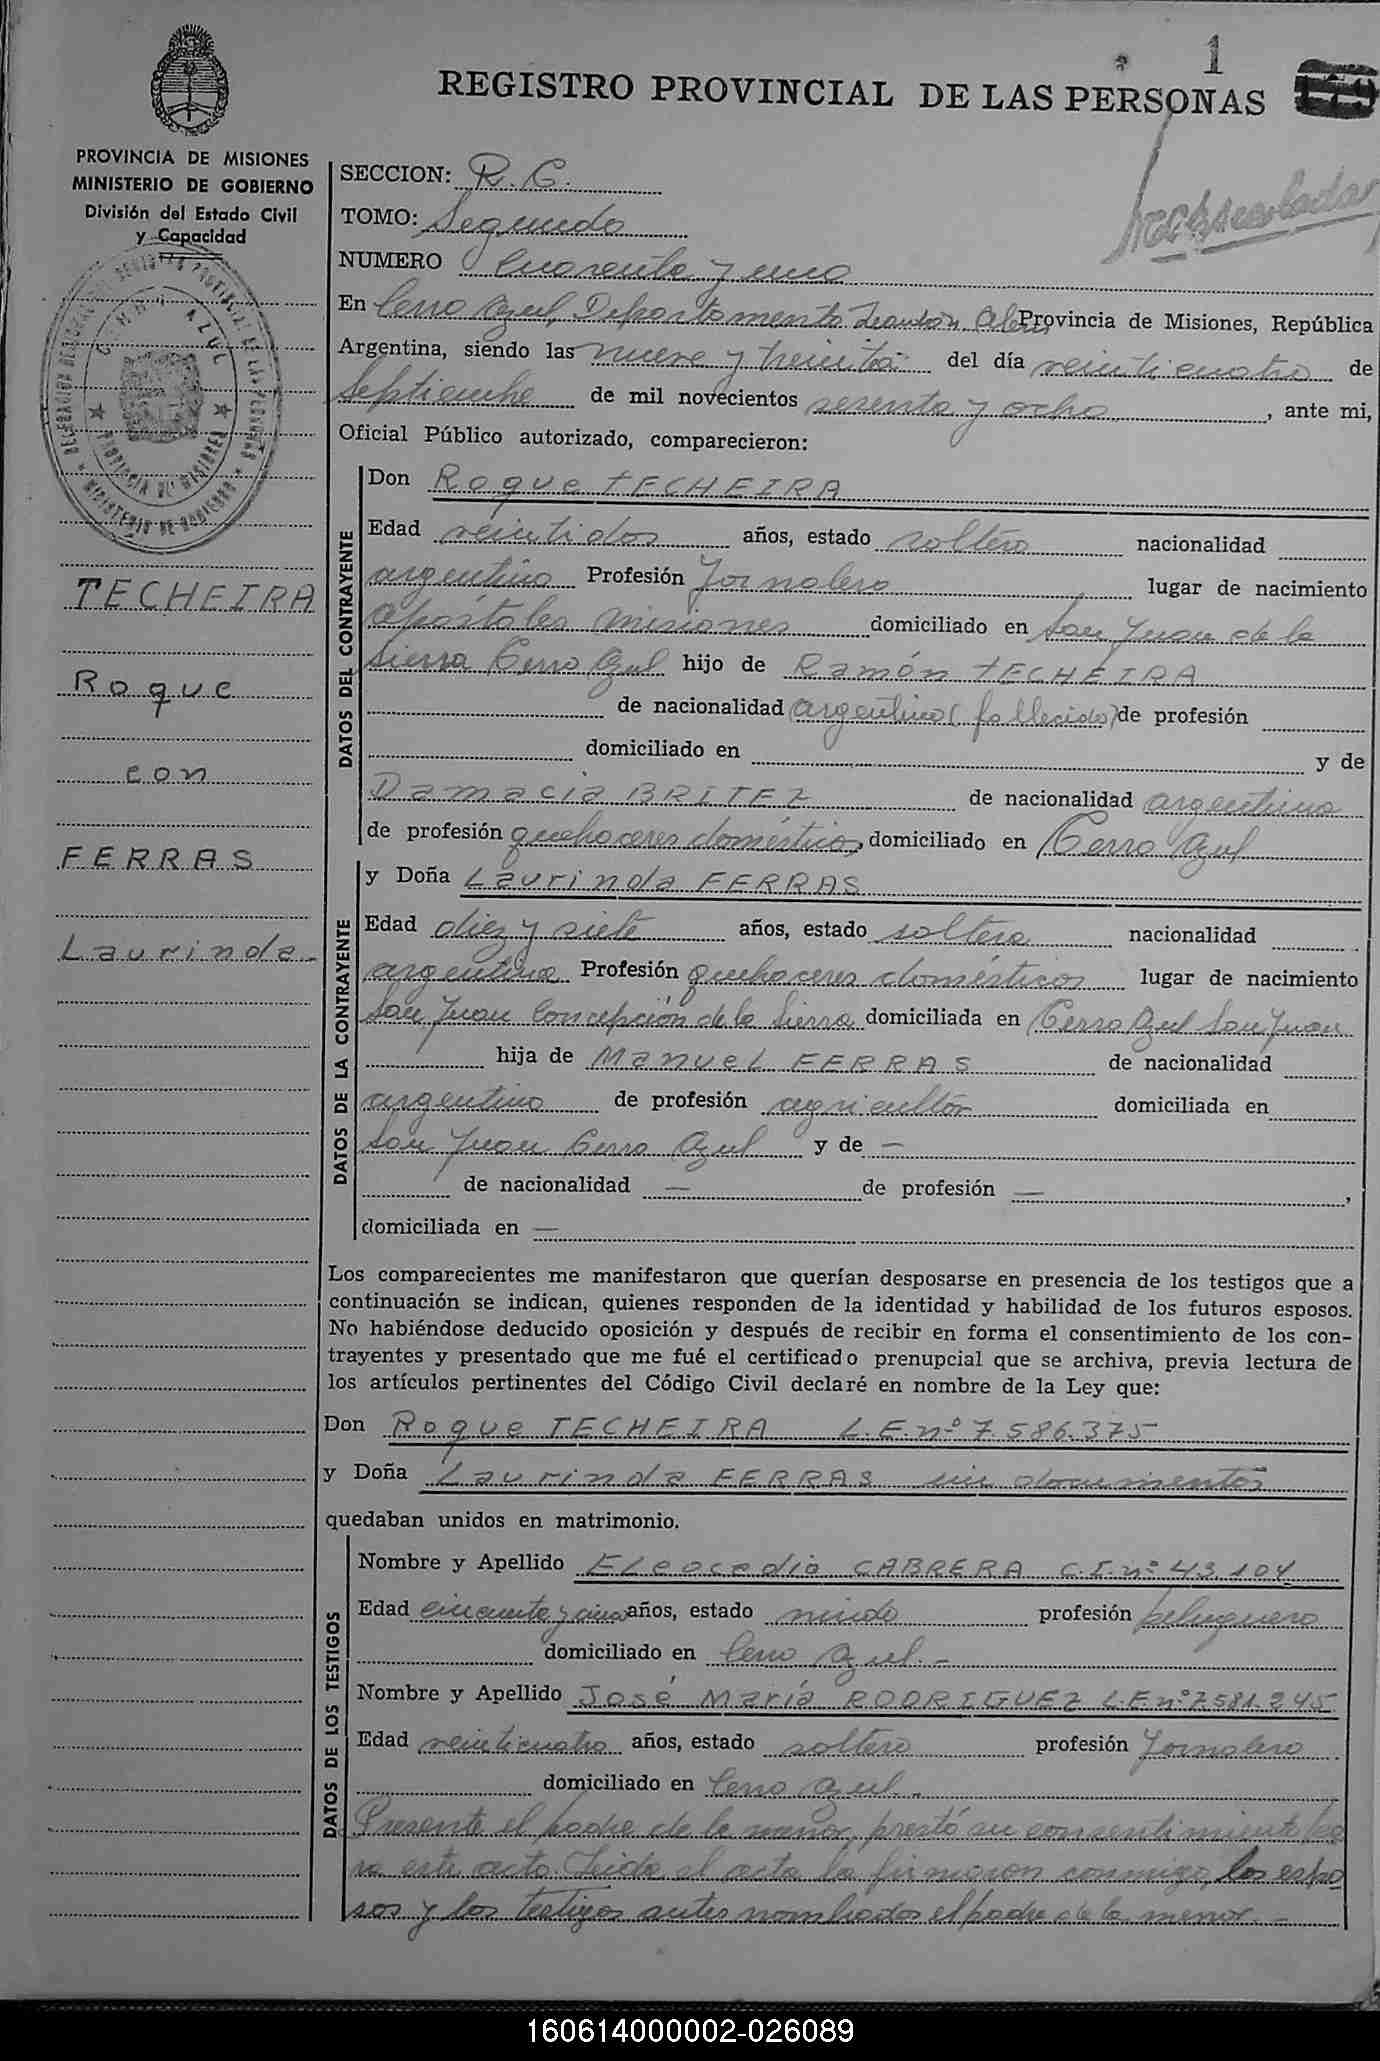 1
REGISTRO PROVINCIAL DE LAS PERSONAS
179
PROVINCIA DE MISIONES
MINISTERIO DE GOBIERNO
División del Estado Civil
y Capacidad
SECCION: R. C.
TOMO: Segundo
NUMERO Cuarenta y uno
En Cerro Azul, Departamento Leandro Alem, Provincia de Misiones, República
Argentina, siendo las nueve y treinta del día veinticuatro de
Septiembre de mil novecientos sesenta y ocho, ante mi,
Oficial Público autorizado, comparecieron:
TECHEIRA
Roque
con
FERRAS
Laurinda-
DATOS DEL CONTRAYENTE
Don Roque TECHEIRA
Edad veintidos años, estado soltero nacionalidad
argentino Profesión Jornalero lugar de nacimiento
Apóstoles Misiones domiciliado en San Juan de la
Sierra Cerro Azul hijo de Ramón TECHEIRA
de nacionalidad argentino (fallecido) de profesión
domiciliado en y de
Damacia BRITEZ de nacionalidad argentina
de profesión quehaceres domésticos, domiciliado en Cerro Azul
DATOS DE LA CONTRAYENTE
y Doña Laurinda FERRAS
Edad diez y siete años, estado soltera nacionalidad
argentina Profesión quehaceres domésticos lugar de nacimiento
San Juan Concepción de la Sierra domiciliada en Cerro Azul San Juan
hija de Manuel FERRAS de nacionalidad
argentino de profesión agricultor domiciliada en
San Juan Cerro Azul y de —
de nacionalidad — de profesión —,
domiciliada en —
Los comparecientes me manifestaron que querían desposarse en presencia de los testigos que a
continuación se indican, quienes responden de la identidad y habilidad de los futuros esposos.
No habiéndose deducido oposición y después de recibir en forma el consentimiento de los con-
trayentes y presentado que me fué el certificado prenupcial que se archiva, previa lectura de
los artículos pertinentes del Código Civil declaré en nombre de la Ley que:
Don Roque TECHEIRA L.E.nº 7.586.375
y Doña Laurinda FERRAS sin documentos
quedaban unidos en matrimonio.
DATOS DE LOS TESTIGOS
Nombre y Apellido Eleocedio CABRERA C.I.nº 43.104
Edad años, estado viudo profesión peluquero
domiciliado en Cerro Azul.-
Nombre y Apellido José María RODRIGUEZ L.E.nº 7.581.245
Edad veinticuatro años, estado soltero profesión Jornalero
domiciliado en Cerro Azul.-
Presente el padre de la menor, prestó su consentimiento pa
ra este acto. Leída el acta la firmaron conmigo, los espo
sos y los testigos antes nombrados el padre de la menor.-
160614000002-026089